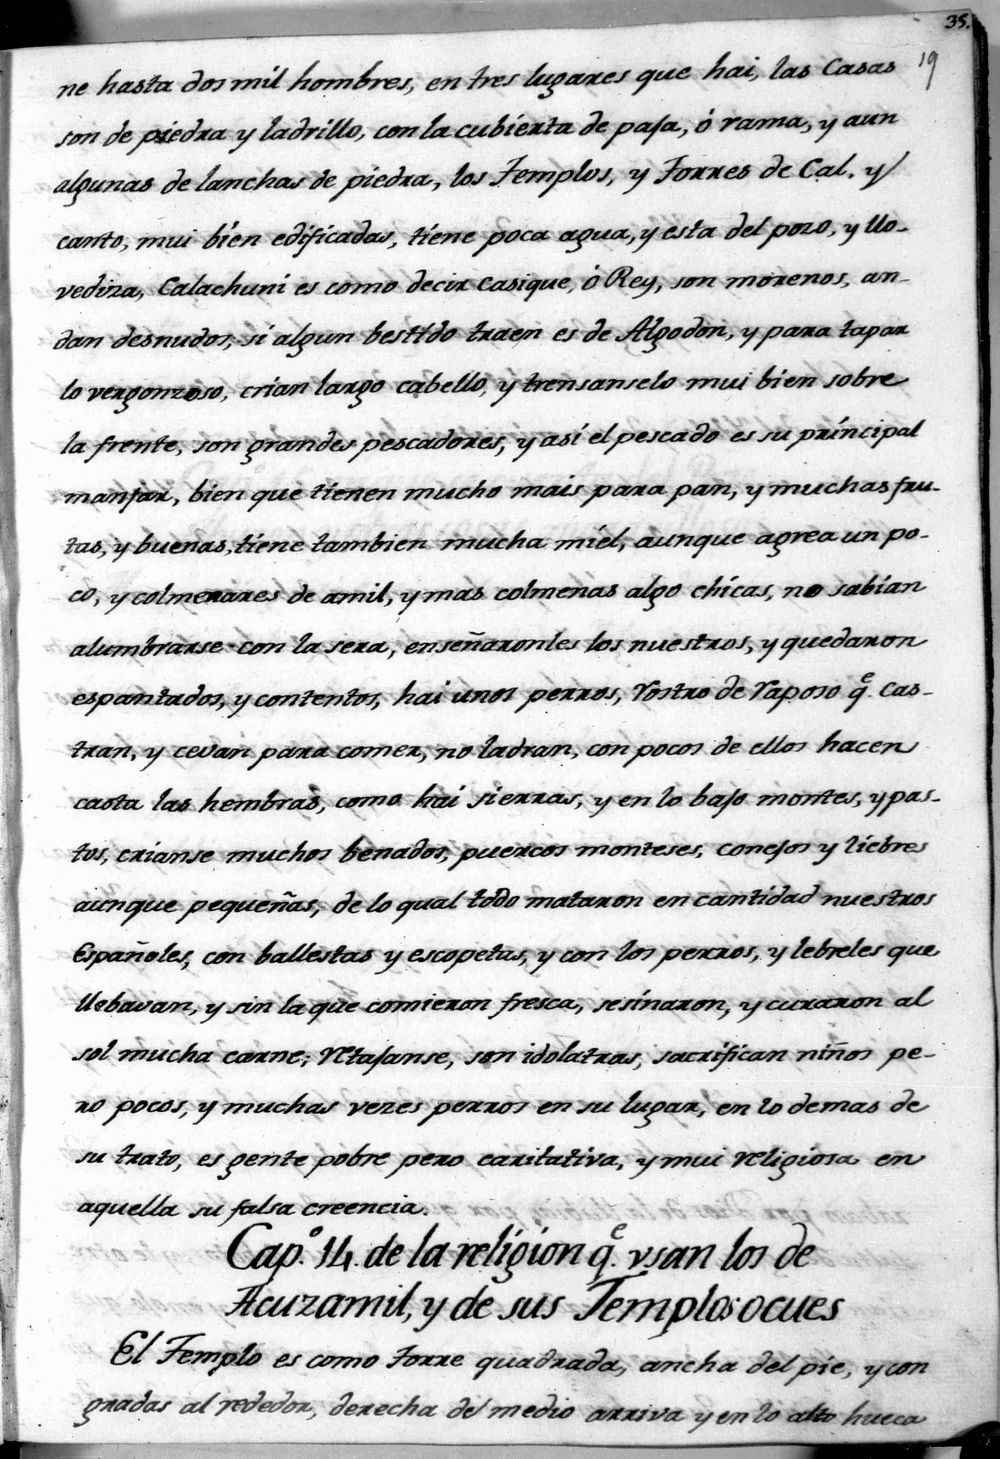 35.
19
ne hasta dos mil hombres, en tres lugares que hai, las Casas
son de piedra y ladrillo, con la cubierta de paja, ó rama, y aun
algunas de lanchas de piedra, los Templos, y Torres de Cal, y
canto, mui bien edificadas, tiene poca agua, y esta del pozo, y llo-
vediza, Calachuni es como decir casique, ó Rey, son morenos, an-
dan desnudos, si algun bestido traen es de Algodon, y para tapar
lo vergonzoso, crian largo cabello, y trensanselo mui bien sobre
la frente, son grandes pescadores, y así el pescado es su príncipal
manjar, bien que tienen mucho mais para pan, y muchas fru-
tas, y buenas, tiene tambien mucha miel, aunque agrea un po-
co, y colmenares de amil, y mas colmenas algo chicas, no sabían
alumbrarse con la sera, enseñaronles los nuestros, y quedaron
espantados, y contentos, hai unos perros, rostro de raposo q.e cas-
tran, y cevan para comer, no ladran, con pocos de ellos hacen
casta las hembras, como hai sierras, y en lo bajo montes, y pas-
tos, crianse muchos benados, puercos monteses, conejos y liebres
aunque pequeñas, de lo qual todo mataron en cantidad nuestros
Españoles, con ballestas y escopetas, y con los perros, y lebreles que
llebavan, y sin la que comieron fresca, sesinaron, y curaron al
sol mucha carne; retajanse, son idolatras, sacrifican niños pe-
ro pocos, y muchas vezes perros en su lugar, en lo demas de
su trato, es gente pobre pero caritativa, y mui religiosa en
aquella su falsa creencia.
Cap.o 14. de la religion q.e vsan los de
Acuzamil, y de sus Templos: ocues
El Templo es como Torre quadrada, ancha del pie, y con
gradas al rededor, derecha del medio arriva y en lo alto hueca